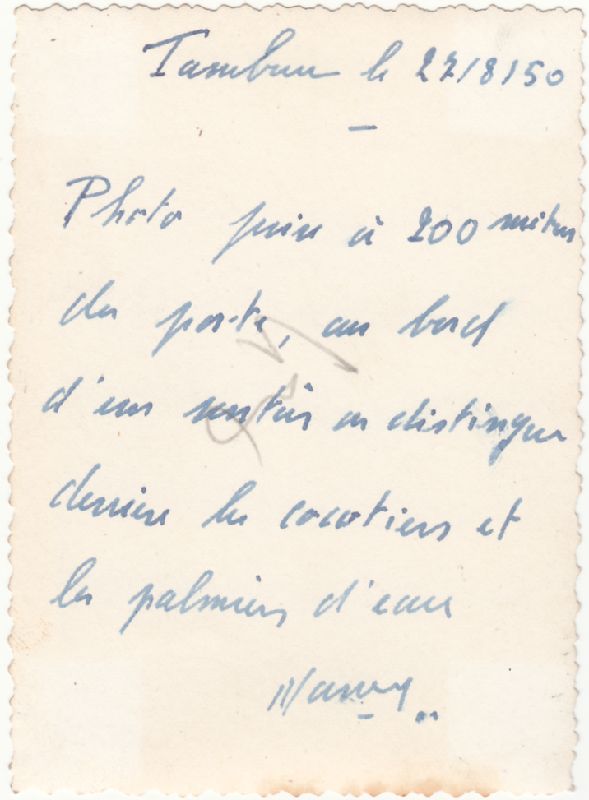 le 27/8/50
Photo prise à 200 mètres
du poste, au bord
d'un sentier on distingue
derrière les cocotiers et
les palmiers d'eau